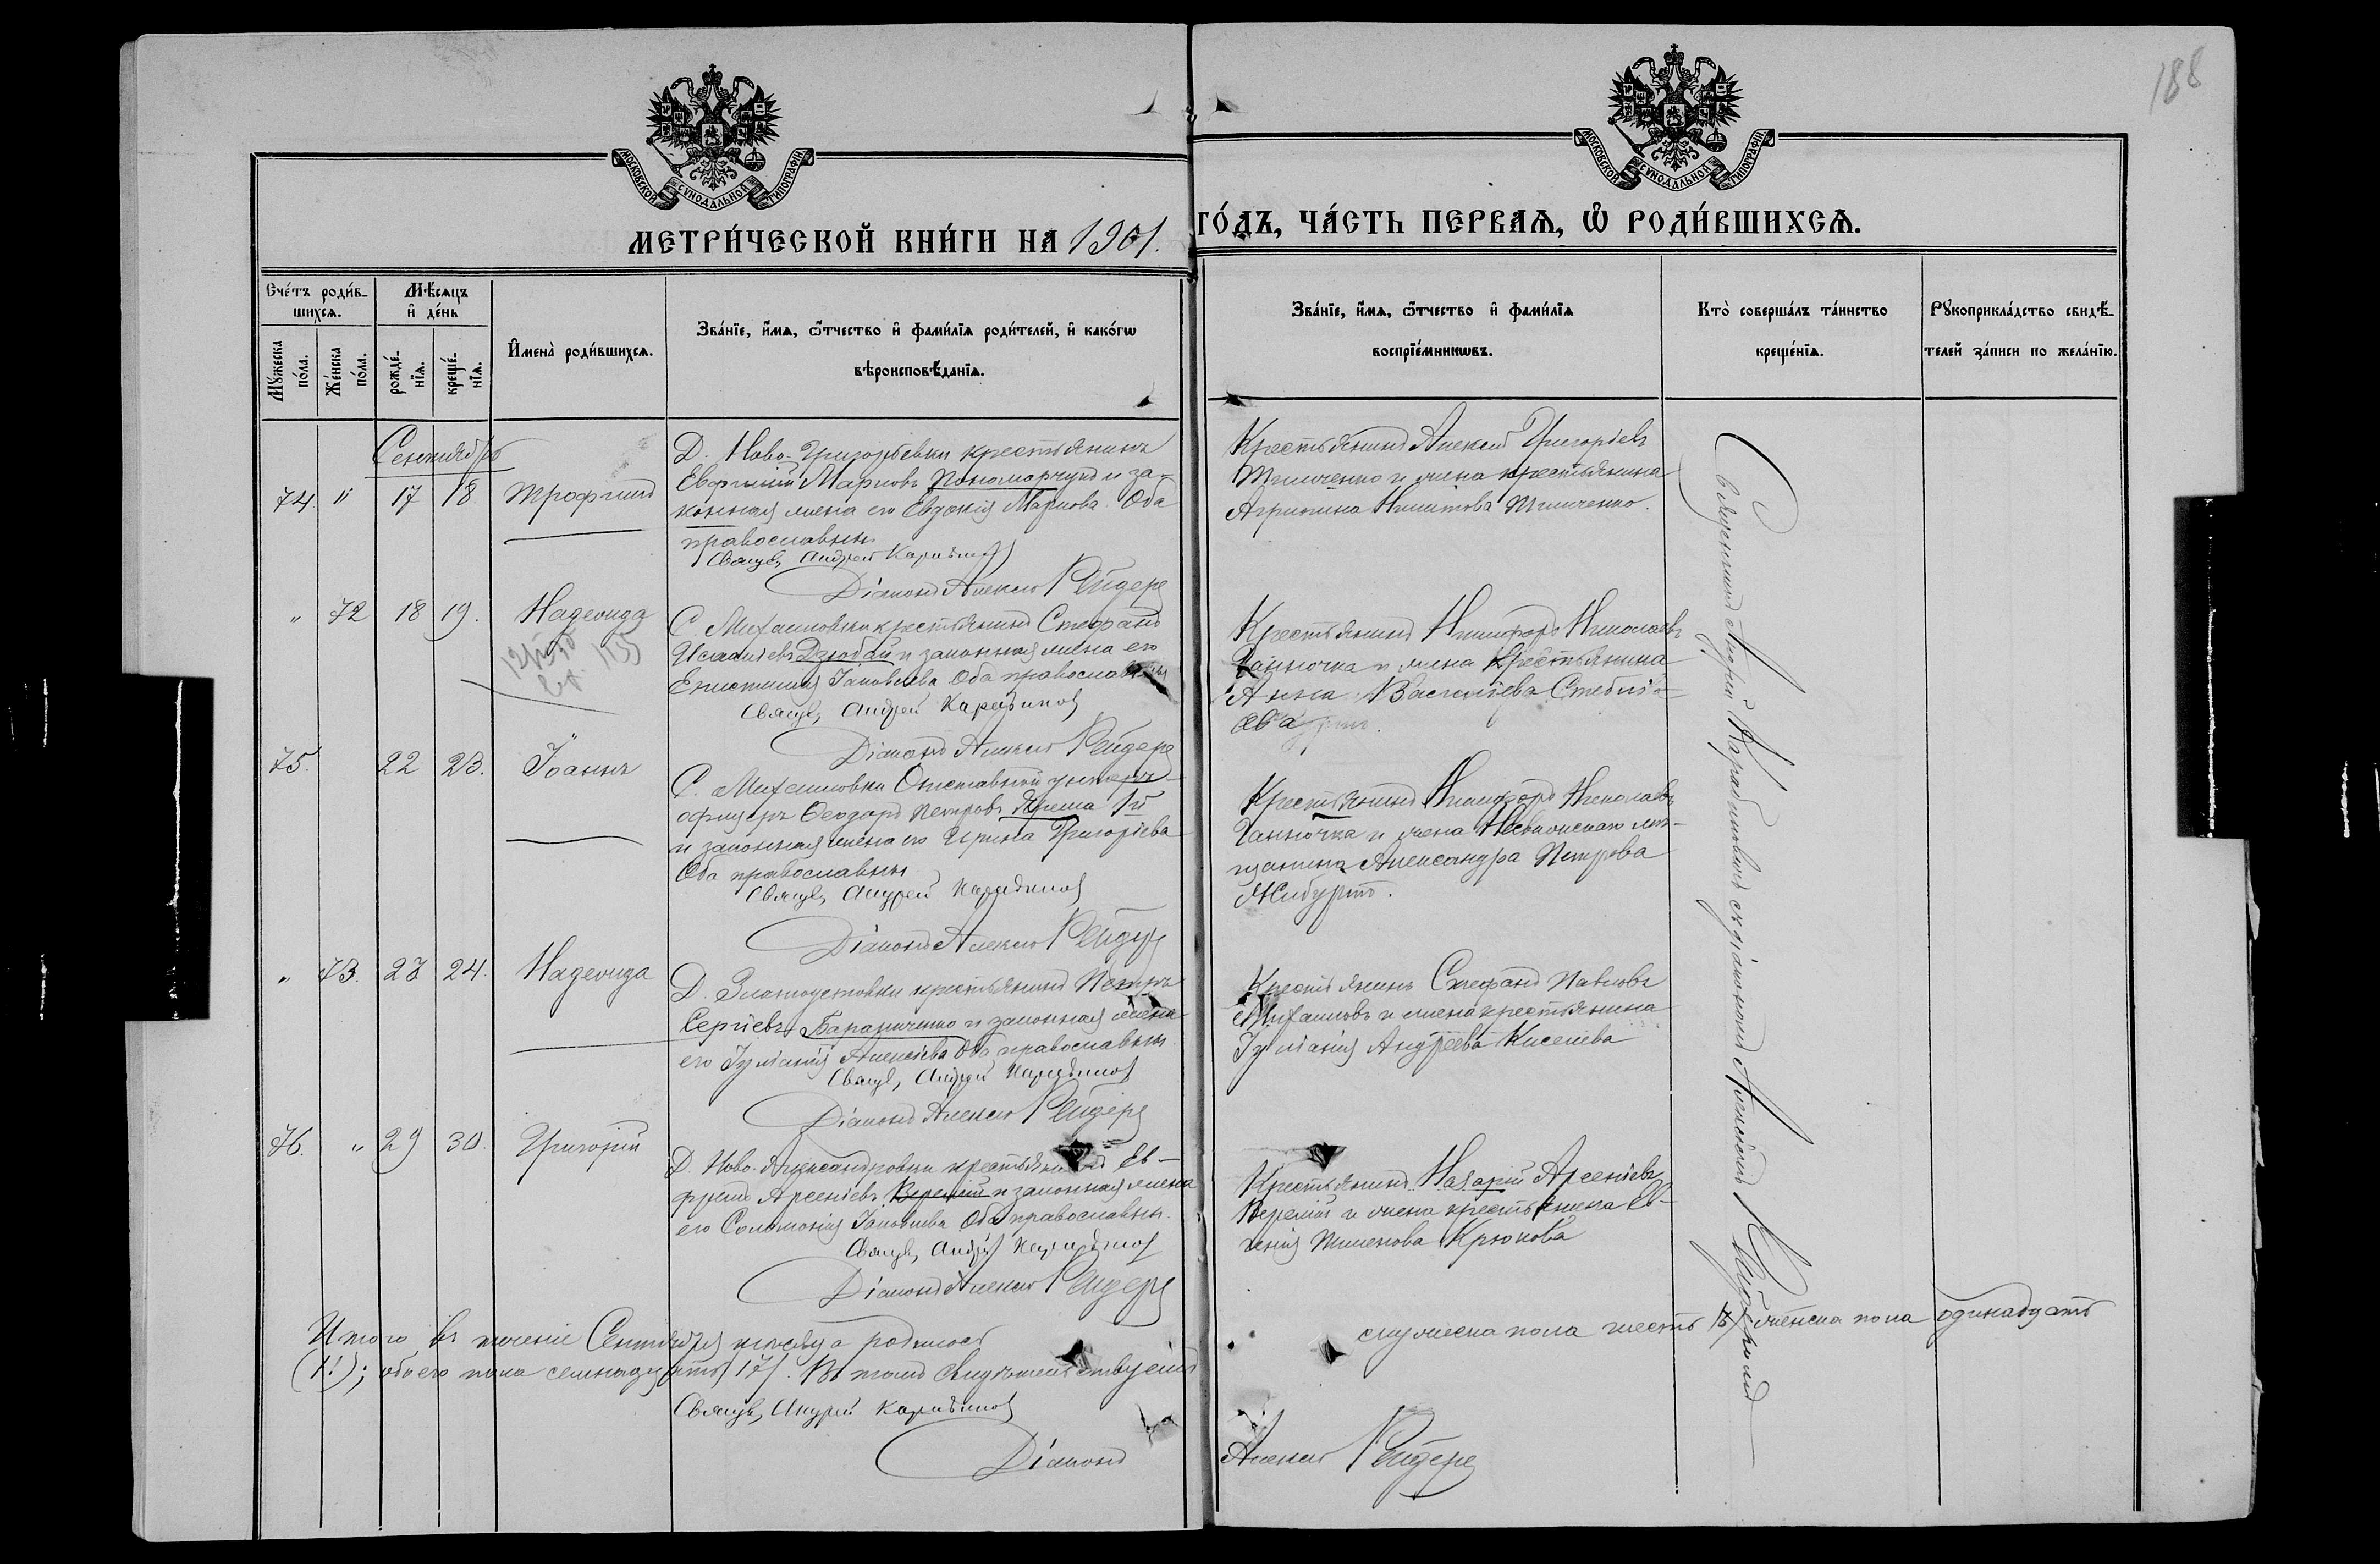 188
МОСКОВСКОЙ СѴНОДАЛЬНОЙ ТИПОГРАФІИ
МОСКОВСКОЙ СѴНОДАЛЬНОЙ ТИПОГРАФІИ
МЕТРИ́ЧЕСКОЙ КНИ́ГИ НА 1901. ГО́ДЪ, ЧА́СТЬ ПЕРВАѦ, Ѡ҃ РОДИ́ВШИХСѦ.
Счетъ роди́в-
шихсѧ.
Мꙋжеска по́ла.
Же́нска по́ла.
Мѣсѧцъ
и҆ де́нь
рожде́-
нїѧ.
креще́-
нїѧ.
И҆мена̀ роди́вшихсѧ.
Зва́нїе, и҆́мѧ, ѻ҆́тчество и҆ фами́лїѧ роди́телей, и҆ како́гѡ
вѣроисповѣ́данїѧ.
Зва́нїе, и҆́мѧ, ѻ҆́тчество и҆ фами́лїѧ
воспрїе́мникѡвъ.
Кто̀ соверша́лъ та́инство
креще́нїѧ.
Рꙋкоприкла́дство свидѣ́-
телей за́писи по жела́нїю.
Сентябрь
74. " 17 18 Трофимъ
Д. Ново-Григорьевки крестьянинъ
Марковъ Пономарчукъ и за-
конная жена его Евдокія Маркова. Оба
православны.
Свящ. Андрей Карабиновъ
Діаконъ Алексѣй Рейдеръ
Крестьянинъ Алексѣй Григоріевъ
и жена крестьянина
Агрипина
" 72 18 19. Надежда
135
С. Михайловки крестьянинъ Стефанъ
Дзюбай и законная жена его
Іаковлева Оба православны
Свящ. Андрей Карабиновъ
Діаконъ Алексѣй Рейдеръ
Крестьянинъ Никифоръ Николаевъ
Ганночка и жена крестьянина
Анна Василіева
75. 22 23. Іоаннъ
С. Михайловки Отставной унтеръ-
офицеръ Ѳеодоръ Петровъ Ярема 1й
и законная жена его Ирина Григоріева
Оба православны
Свящ. Андрей Карабиновъ
Діаконъ Алексѣй Рейдеръ
Крестьянинъ Никифоръ Николаевъ
Ганночка и жена мѣ-
щанина Александра Петрова
" 73. 23 24. Надежда
Д. Златоустовки крестьянинъ Петръ
Сергіевъ и законная жена
его Іуліанія Алексіева Оба православны
Свящ. Андрей Карабиновъ
Діаконъ Алексѣй Рейдеръ
Крестьянинъ Стефанъ Павловъ
Михайловъ и жена крестьянина
Іуліанія Андреева Киселева
76. " 29 30. Григорій
Д. Ново-Александровки крестьянинъ Ев-
фремъ Арсеніевъ Веремій и законная жена
его Соломонія Іаковлева Оба православны.
Свящ. Андрей Карабиновъ
Діаконъ Алексѣй Рейдеръ
Крестьянинъ Назарій Арсеніевъ
Веремій и жена крестьянина Ев-
генія Крюкова
Священникъ Андрей Карабиновъ съ діакономъ Алексѣемъ Рейдеромъ
Итого въ теченіе Сентября мѣсяца родилось мужеска пола шесть (6) женска пола одинадцать
(11); обоего пола семнадцать (17). Въ томъ свидѣтельствуемъ
Свящ. Андрей Карабиновъ
Діаконъ Алексѣй Рейдеръ